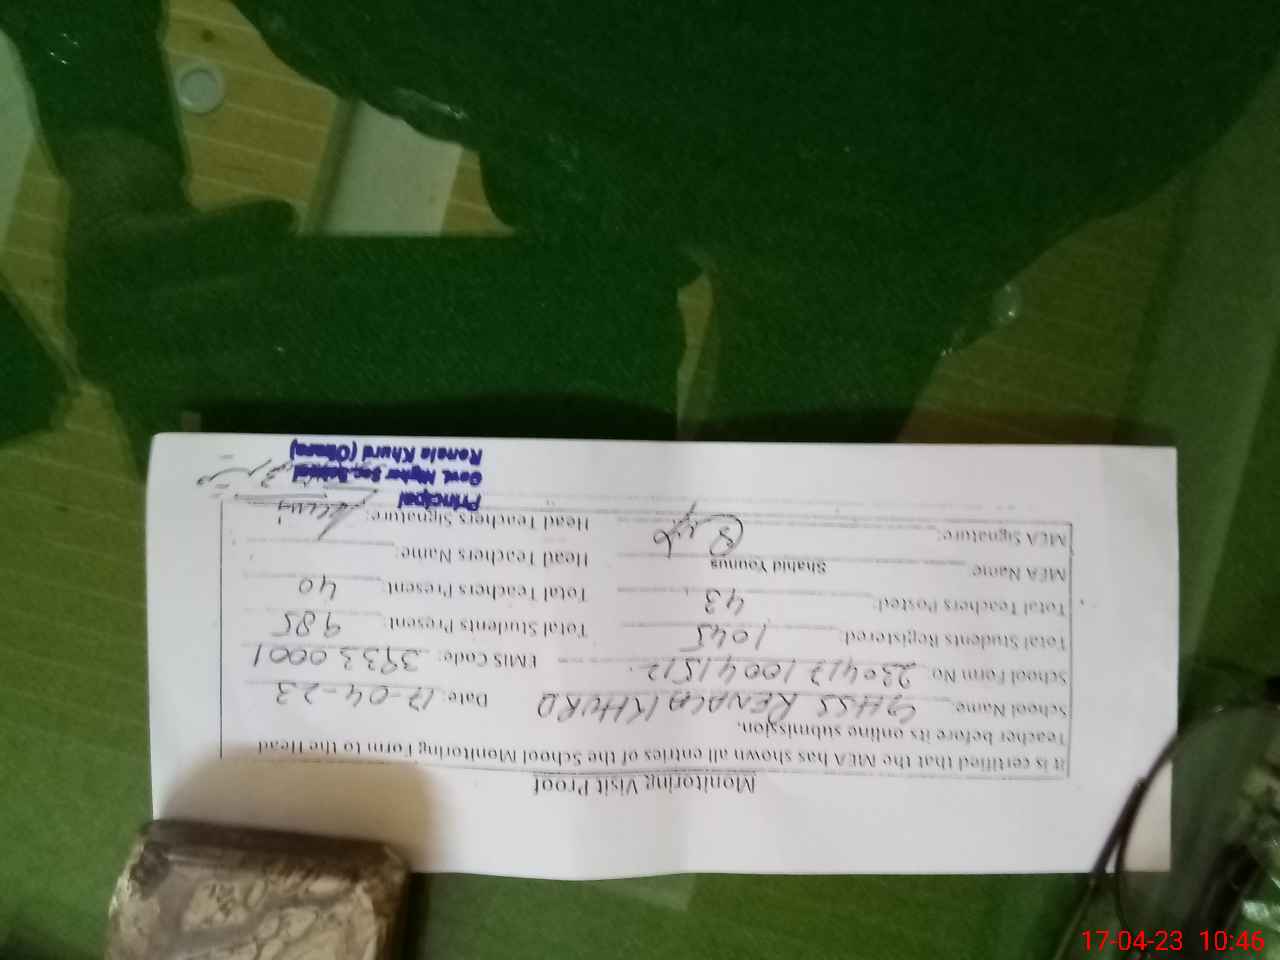 Monitoring Visit Proof
It is certified that the MEA has shown all entries of the School Monitoring Form to the Head
Teacher before its online submission.
School Name: GHSS RENALA KHURD Date: 17-04-23
School Form No: 23041710041512 EMIS Code: 39330001
Total Students Registered: 1045 Total Students Present: 985
Total Teachers Posted: 43 Total Teachers Present: 40
MEA Name: Shahid Younus Head Teachers Name:
MEA Signature: Head Teachers Signature:
Principal
Govt. Higher Sec. School
Renala Khurd (Okara)
17-04-23 10:46